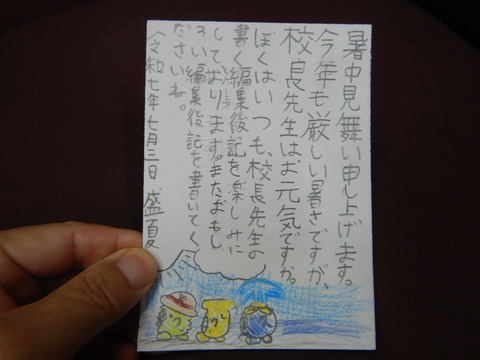 暑中見舞い申し上げます。
今年も厳しい暑さですが、
校長先生はお元気ですか。
ぼくはいつも、校長先生の
書く編集後記を楽しみに
しております。またおもし
ろい編集後記を書いてく
ださいね。
令和七年七月三日 盛夏